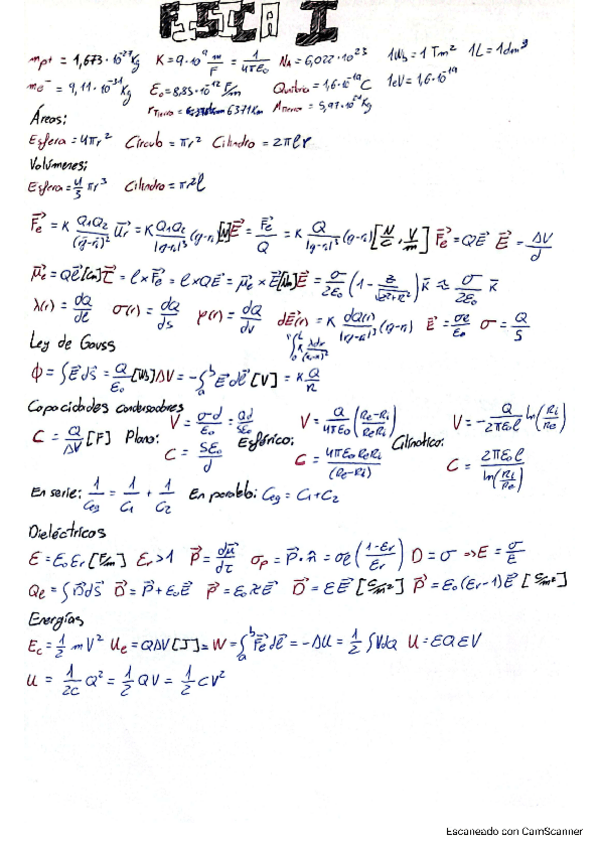 FÍSICA I
mp+ = 1,673·10⁻²⁷Kg K=9·10⁹ m/F = 1/4πε₀ NA=6,022·10²³ 1Wb=1Tm² 1L=1dm³
me⁻ = 9,11·10⁻³¹Kg ε₀=8,85·10⁻¹² F/m 1,6·10⁻¹⁹C 1eV=1,6·10⁻¹⁹
rTierra= 6371Km MTierra=
Áreas:
Esfera=4πr² Círculo=πr² Cilindro=2πlr
Volúmenes:
Esfera=4/3 πr³ Cilindro=πr²l
Fe = K Q₁Q₂/(q-ri)² ur = K Q₁Q₂/|q-ri|³ (q-ri)[N] E = Fe/Q = K Q/|q-ri|³ (q-ri) [N/C, V/m] Fe=QE E = ΔV/d
μe=Ql[Cm] τ = l×Fe = l×QE = μe×E[Nm] E = σ/2ε₀ (1 - z/√(z²+R²)) k ≈ σ/2ε₀ k
λ(r) = dQ/dl σ(r) = dQ/ds ρ(r) = dQ/dv dE(r) = K dQ(r)/|r-ri|³ (q-ri) E = σe/ε₀ σ = Q/S
Ley de Gauss
Φ=∫E ds = Q/ε₀ [Wb] ΔV=-∫ₐᵇ E dl [V] = K Q/r
Capacidades condensadores
C = Q/ΔV [F] Plano: V = σ·d/ε₀ = Qd/Sε₀ C = Sε₀/d Esférico: V = Q/4πε₀ (Re-Ri/ReRi) C = 4πε₀ReRi/(Re-Ri) Cilíndrico: V = -Q/2πε₀l ln(Ri/Re) C = 2πε₀l/ln(Ri/Re)
En serie: 1/Ceq = 1/C₁ + 1/C₂ En paralelo: Ceq = C₁+C₂
Dieléctricos
ε=ε₀εr[F/m] εr>1 P = dμ/dτ σp = P·n = σe(1-εr/εr) D = σ ⇒E = σ/ε
Qe = ∫D ds D = P+ε₀E P = ε₀χE D = εE [C/m²] P = ε₀(εr-1)E [C/m²]
Energías
Ec=1/2 mV² Ue = QΔV[J]=W=∫ₐᵇ Fe dl = -ΔU = 1/2 ∫VdQ
U = 1/2C Q² = 1/2 QV = 1/2 CV²
Escaneado con CamScanner